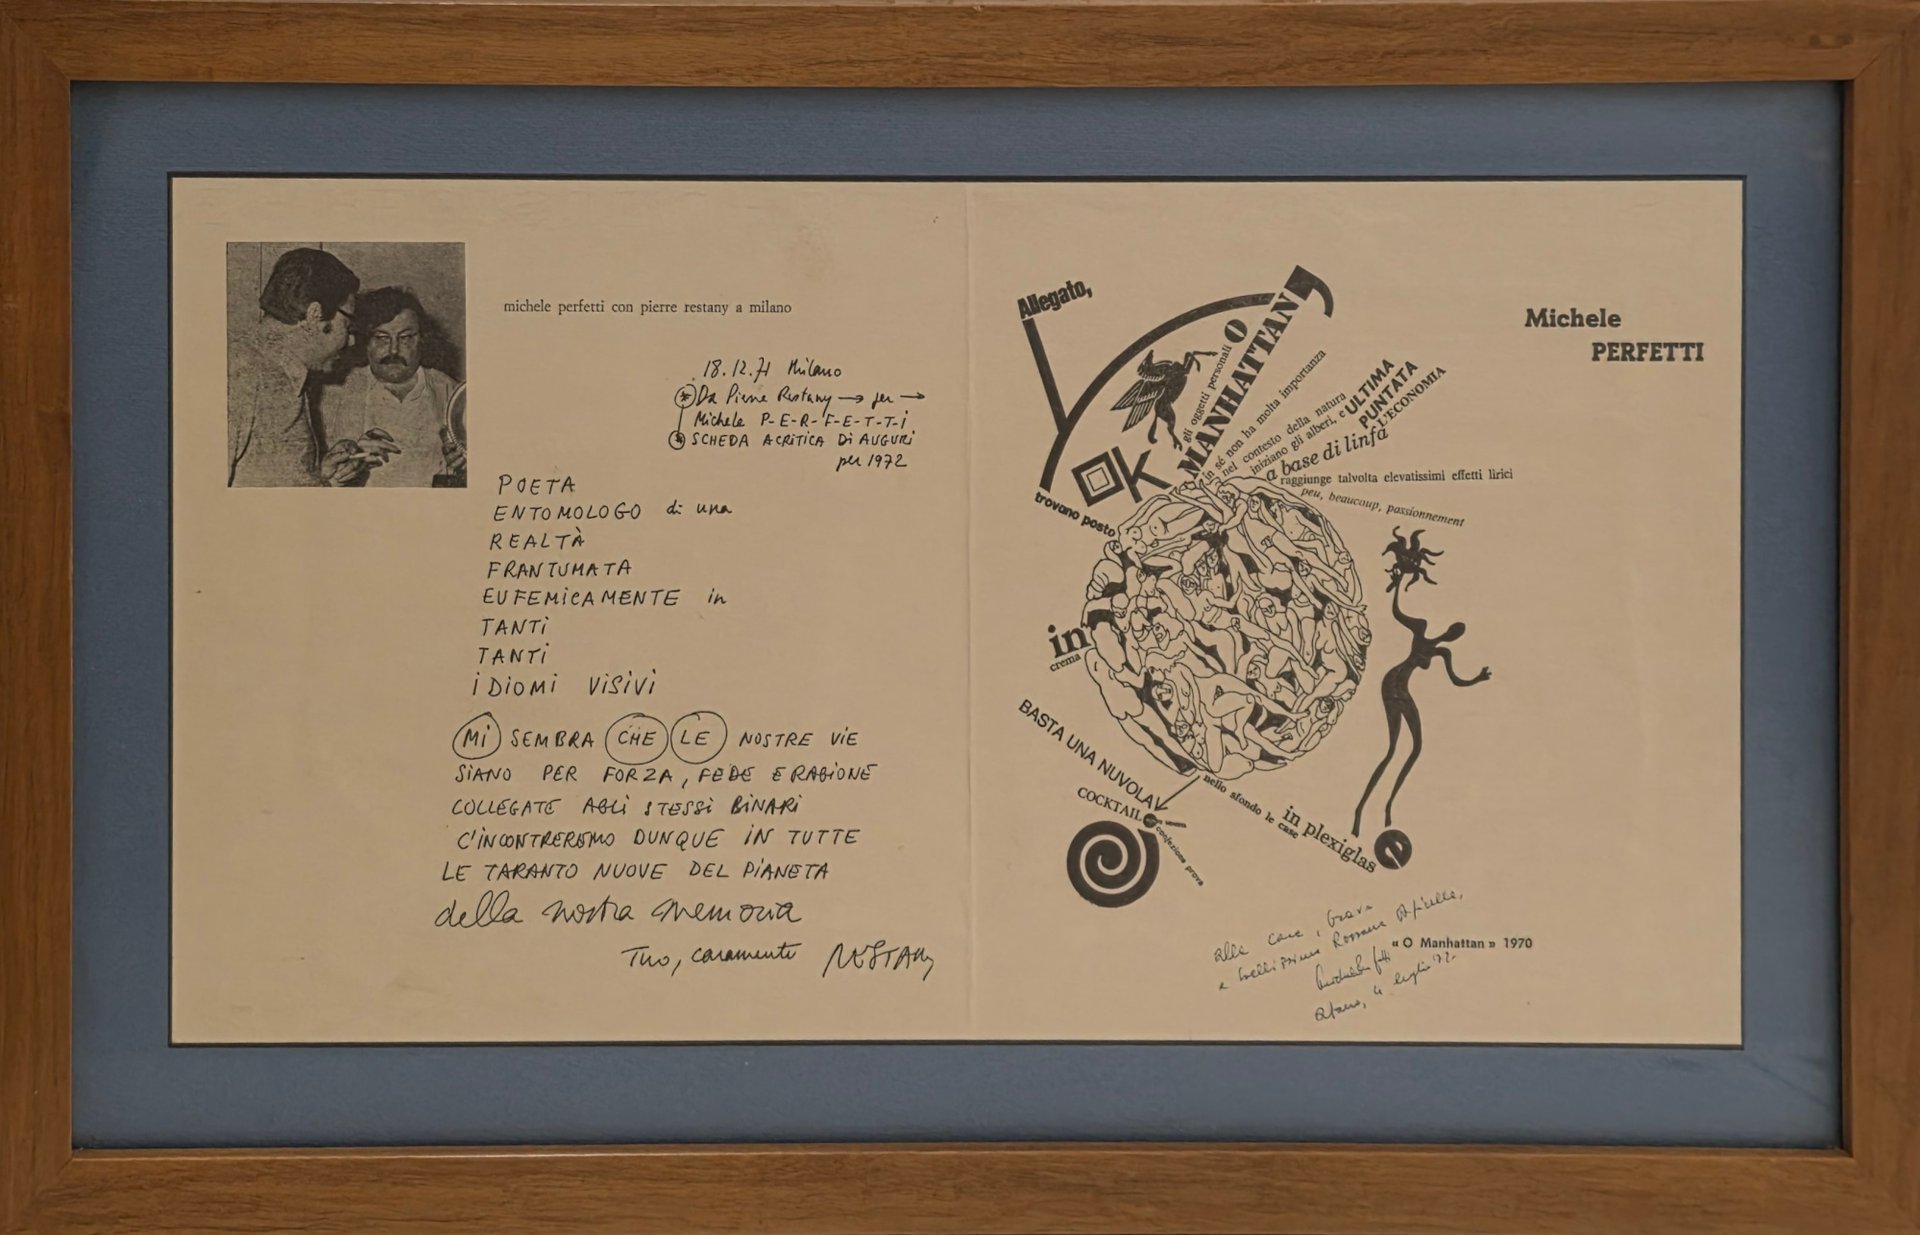 michele perfetti con pierre restany a milano
18.12.71 Milano
Da Pierre Restany → per →
Michele P-E-R-F-E-T-T-I
SCHEDA ACRITICA DI AUGURI
per 1972
POETA
ENTOMOLOGO di una
REALTÀ
FRANTUMATA
EUFEMICAMENTE in
TANTI
TANTI
IDIOMI VISIVI
MI SEMBRA CHE LE NOSTRE VIE
SIANO PER FORZA, FEDE E RAGIONE
COLLEGATE AGLI STESSI BINARI
C'INCONTREREMO DUNQUE IN TUTTE
LE TARANTO NUOVE DEL PIANETA
della nostra memoria
Tuo, caramente RESTANY
Michele
PERFETTI
Allegato,
O
MANHATTAN
gli oggetti personali
OK
trovano posto
in sé non ha molta importanza
nel contesto della natura
iniziano gli alberi, e
ULTIMA
PUNTATA
L'ECONOMIA
a base di linfa
raggiunge talvolta elevatissimi effetti lirici
peu, beaucoup, passionnement
in
crema
BASTA UNA NUVOLA
COCKTAIL
confezione prova
nello sfondo le case
in plexiglas
e
alla cara, brava
e bellissima Rossana Apicella,
« O Manhattan » 1970
4 luglio '72